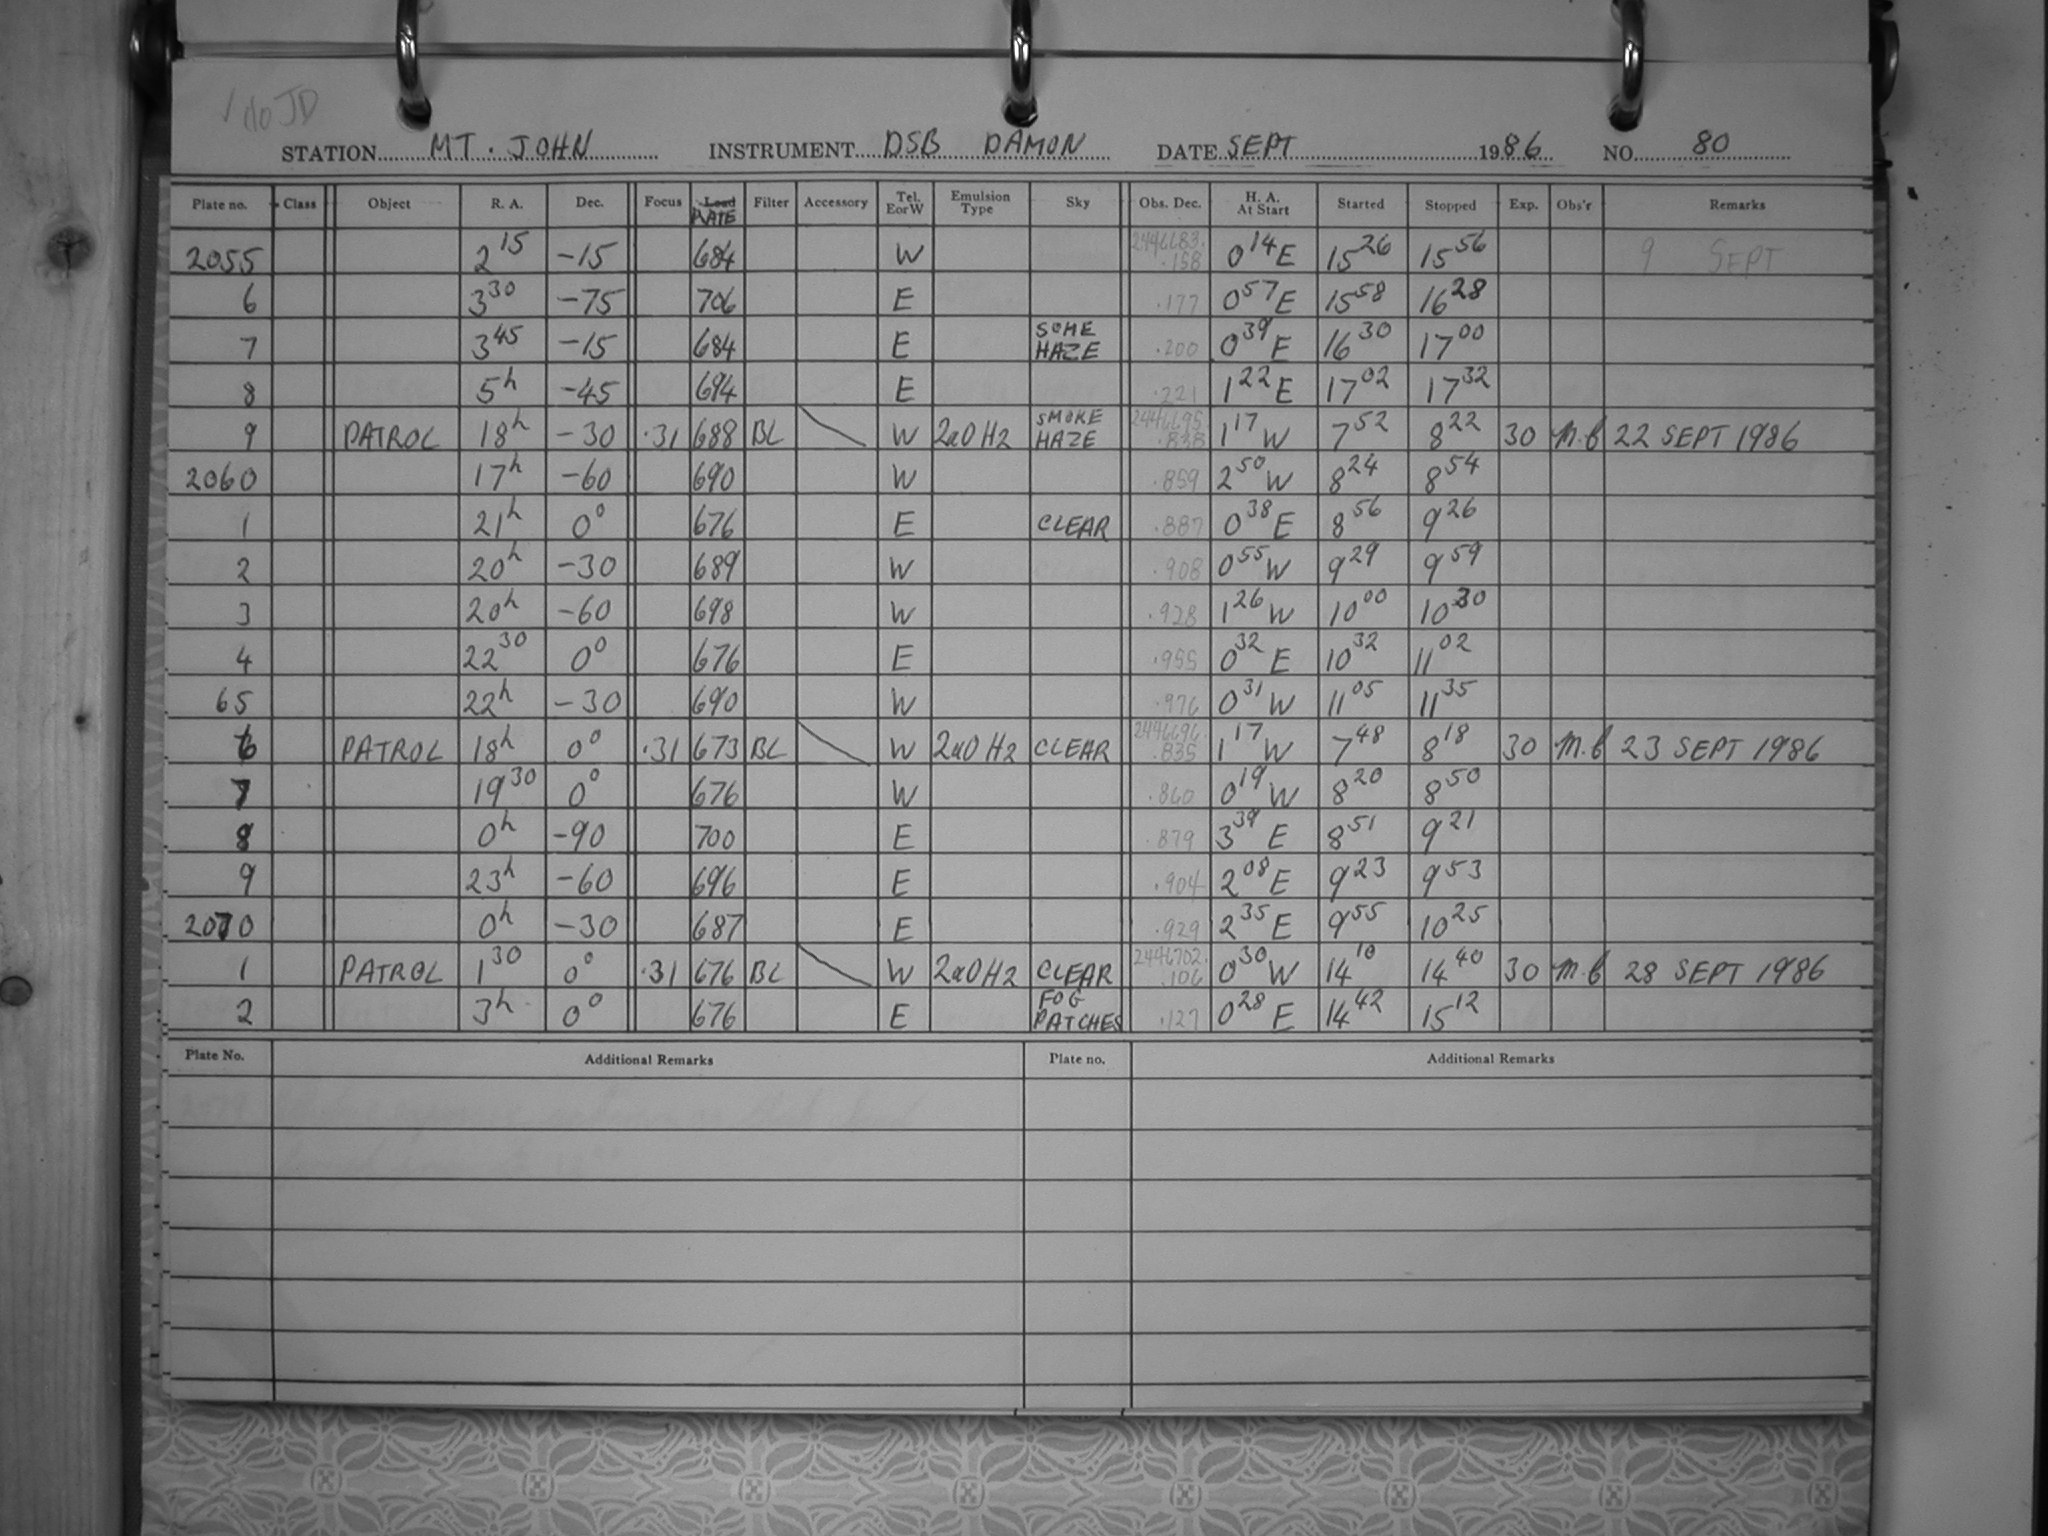 √ no JD
STATION MT. JOHN INSTRUMENT DSB DAMON DATE SEPT 1986 NO. 80
Plate no. Class Object R. A. Dec. Focus Load PLATE Filter Accessory Tel. E or W Emulsion Type Sky Obs. Dec. H. A. At Start Started Stopped Exp. Obs'r Remarks
2055 2 15 -15 684 W 2446683. .158 0 14 E 15 26 15 56 9 SEPT
6 3 30 -75 706 E .177 0 57 E 15 58 16 28
7 3 45 -15 684 E SOME HAZE .200 0 39 E 16 30 17 00
8 5h -45 694 E .221 1 22 E 17 02 17 32
9 PATROL 18h -30 .31 688 BL W 2aO H2 SMOKE HAZE 2446695. .838 1 17 W 7 52 8 22 30 M.C 22 SEPT 1986
2060 17h -60 690 W .859 2 50 W 8 24 8 54
1 21h 0° 676 E CLEAR .887 0 38 E 8 56 9 26
2 20h -30 689 W .908 0 55 W 9 29 9 59
3 20h -60 698 W .928 1 26 W 10 00 10 30
4 22 30 0° 676 E .955 0 32 E 10 32 11 02
65 22h -30 690 W .976 0 31 W 11 05 11 35
6 PATROL 18h 0° .31 673 BL W 2aO H2 CLEAR 2446696. .835 1 17 W 7 48 8 18 30 M.C 23 SEPT 1986
7 19 30 0° 676 W .860 0 19 W 8 20 8 50
8 0h -90 700 E .879 3 39 E 8 51 9 21
9 23h -60 696 E .904 2 08 E 9 23 9 53
2070 0h -30 687 E .929 2 35 E 9 55 10 25
1 PATROL 1 30 0° .31 676 BL W 2aO H2 CLEAR 2446702. .106 0 30 W 14 10 14 40 30 M.C 28 SEPT 1986
2 3h 0° 676 E FOG PATCHES .127 0 28 E 14 42 15 12
Plate No. Additional Remarks Plate no. Additional Remarks